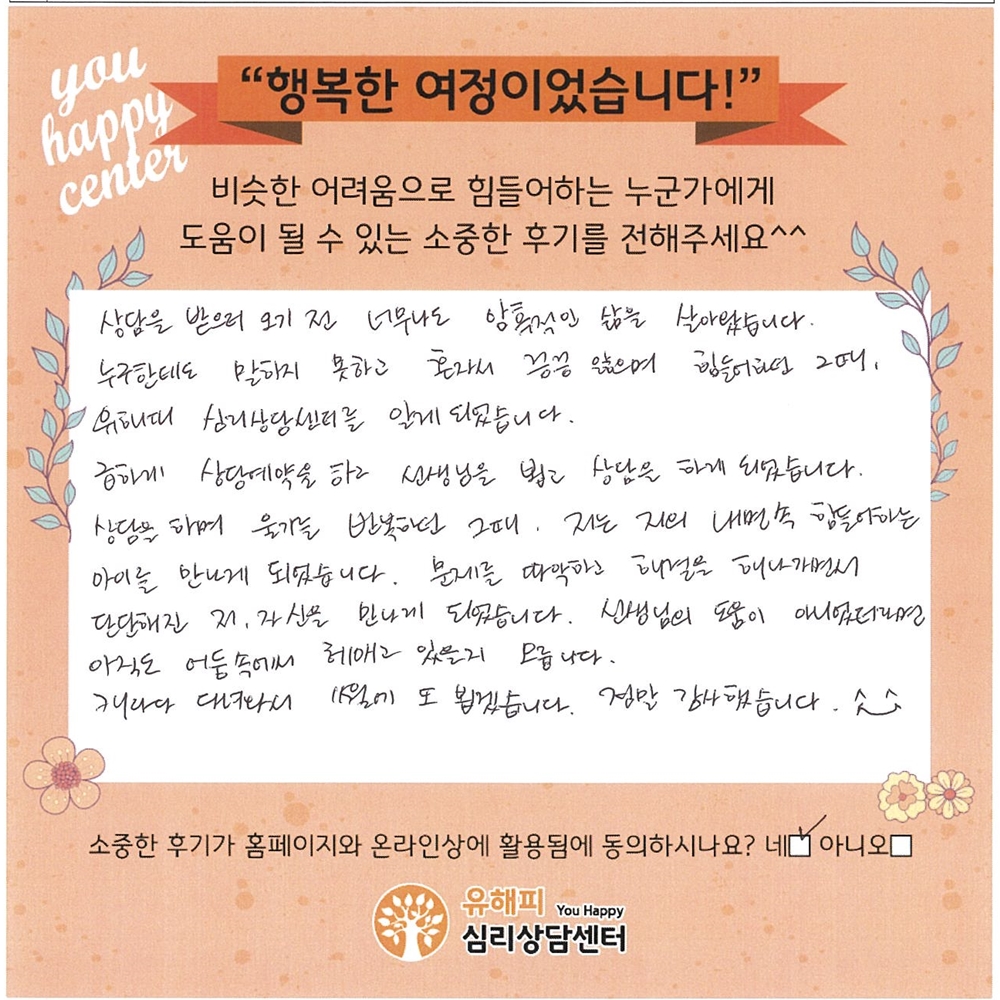 you
happy
center
“행복한 여정이었습니다!”
비슷한 어려움으로 힘들어하는 누군가에게
도움이 될 수 있는 소중한 후기를 전해주세요^^
상담을 받으러 오기 전 너무나도 암흑적인 삶을 살아왔습니다.
누구한테도 말하지 못하고 혼자서 끙끙 앓으며 힘들어하던 그때,
유해피 심리상담센터를 알게 되었습니다.
급하게 상담예약을 하고 선생님을 뵙고 상담을 하게 되었습니다.
상담을 하며 울기를 반복하던 그때, 저는 저의 내면속 힘들어하는
아이를 만나게 되었습니다. 문제를 파악하고 해결을 해나가면서
단단해진 저, 자신을 만나게 되었습니다. 선생님의 도움이 아니었더라면
아직도 어둠속에서 헤매고 있을지 모릅니다.
캐나다 다녀와서 또 뵙겠습니다. 정말 감사했습니다. ^^
소중한 후기가 홈페이지와 온라인상에 활용됨에 동의하시나요? 네☑ 아니오□
유해피 You Happy
심리상담센터